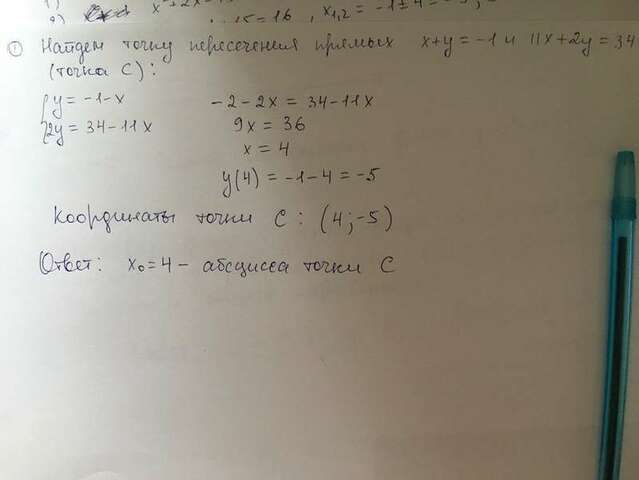 1) x²+2x-1
2) 15=16, x₁,₂ = -1±4 =
① Найдем точку пересечения прямых x+y=-1 и 11x+2y=34
(точка C):
{y=-1-x -2-2x=34-11x
{2y=34-11x 9x=36
x=4
y(4)=-1-4=-5
Координаты точки C: (4;-5)
Ответ: x₀=4 - абсцисса точки C